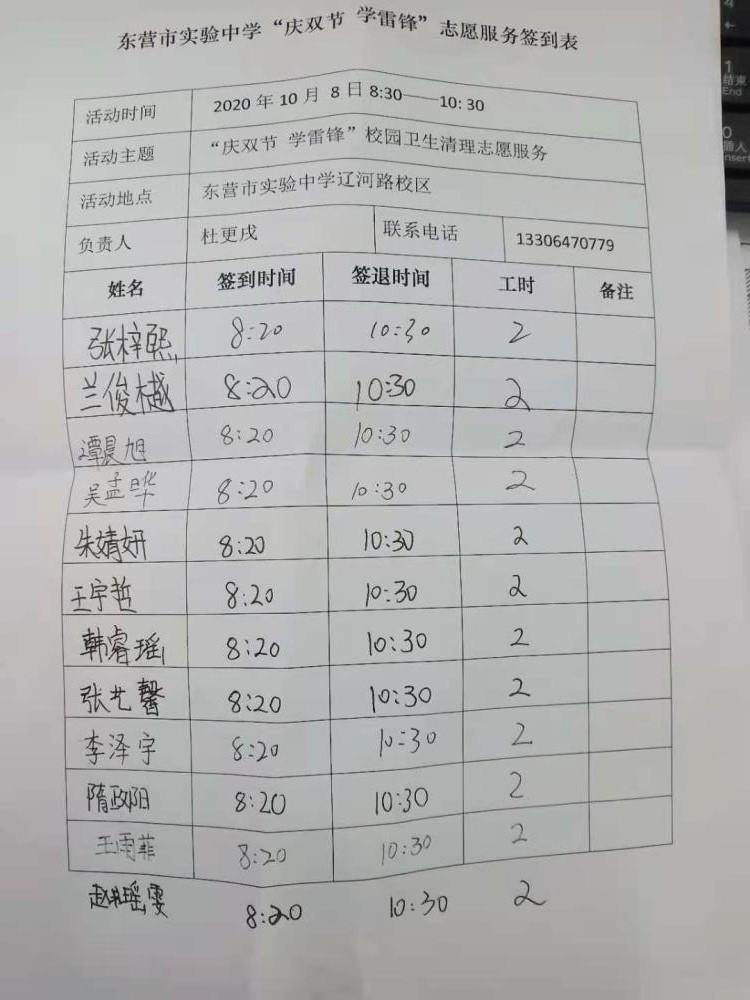 东营市实验中学“庆双节 学雷锋”志愿服务签到表
活动时间 2020 年 10 月 8 日 8:30——10:30
活动主题 “庆双节 学雷锋”校园卫生清理志愿服务
活动地点 东营市实验中学辽河路校区
负责人 杜更戌 联系电话 13306470779
姓名 签到时间 签退时间 工时 备注
张梓熙 8:20 10:30 2
兰俊樾 8:20 10:30 2
谭晨旭 8:20 10:30 2
吴孟晔 8:20 10:30 2
朱婧妍 8:20 10:30 2
王宇哲 8:20 10:30 2
韩睿瑶 8:20 10:30 2
张艺馨 8:20 10:30 2
李泽宇 8:20 10:30 2
隋政阳 8:20 10:30 2
王雨菲 8:20 10:30 2
8:20 10:30 2
4
1
结束
End
0
插入
Insert